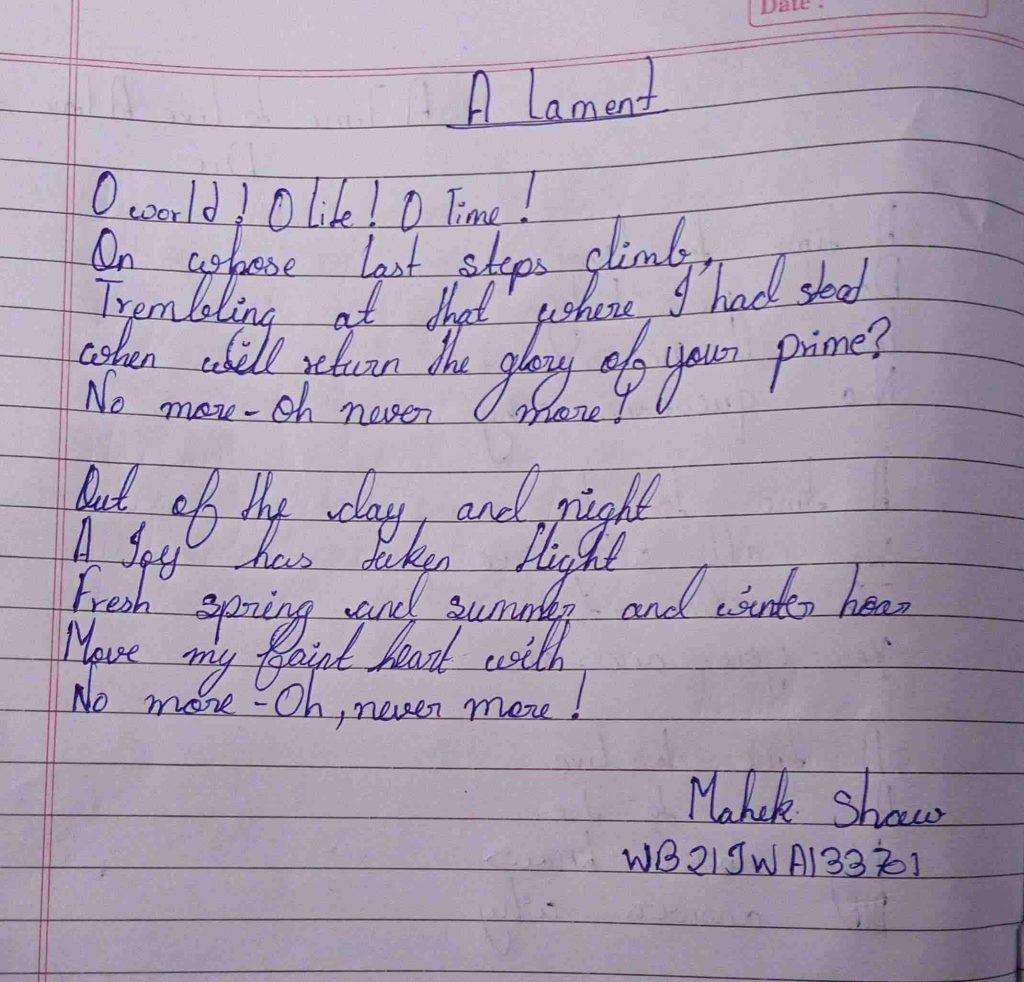 Date :
A Lament
O world! O life! O Time!
On whose last steps climb,
Trembling at that where I had stood
when will return the glory of your prime?
No more - Oh never more!
Out of the day and night
A Joy has taken flight
Fresh spring and summer and winter hoar
Move my faint heart with
No more - Oh, never more!
Mahek Shaw
WB21JWA133701